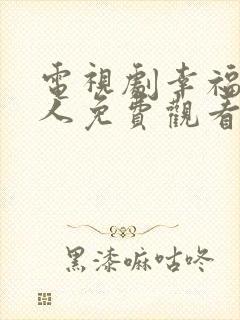 電視劇幸福
人免費觀看
黑漆嘛咕咚